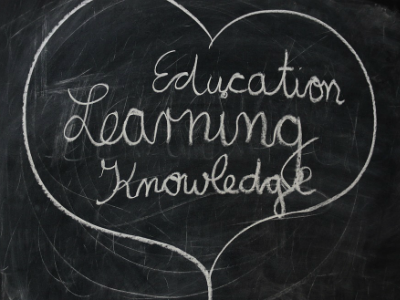 Education
Learning
Knowledge